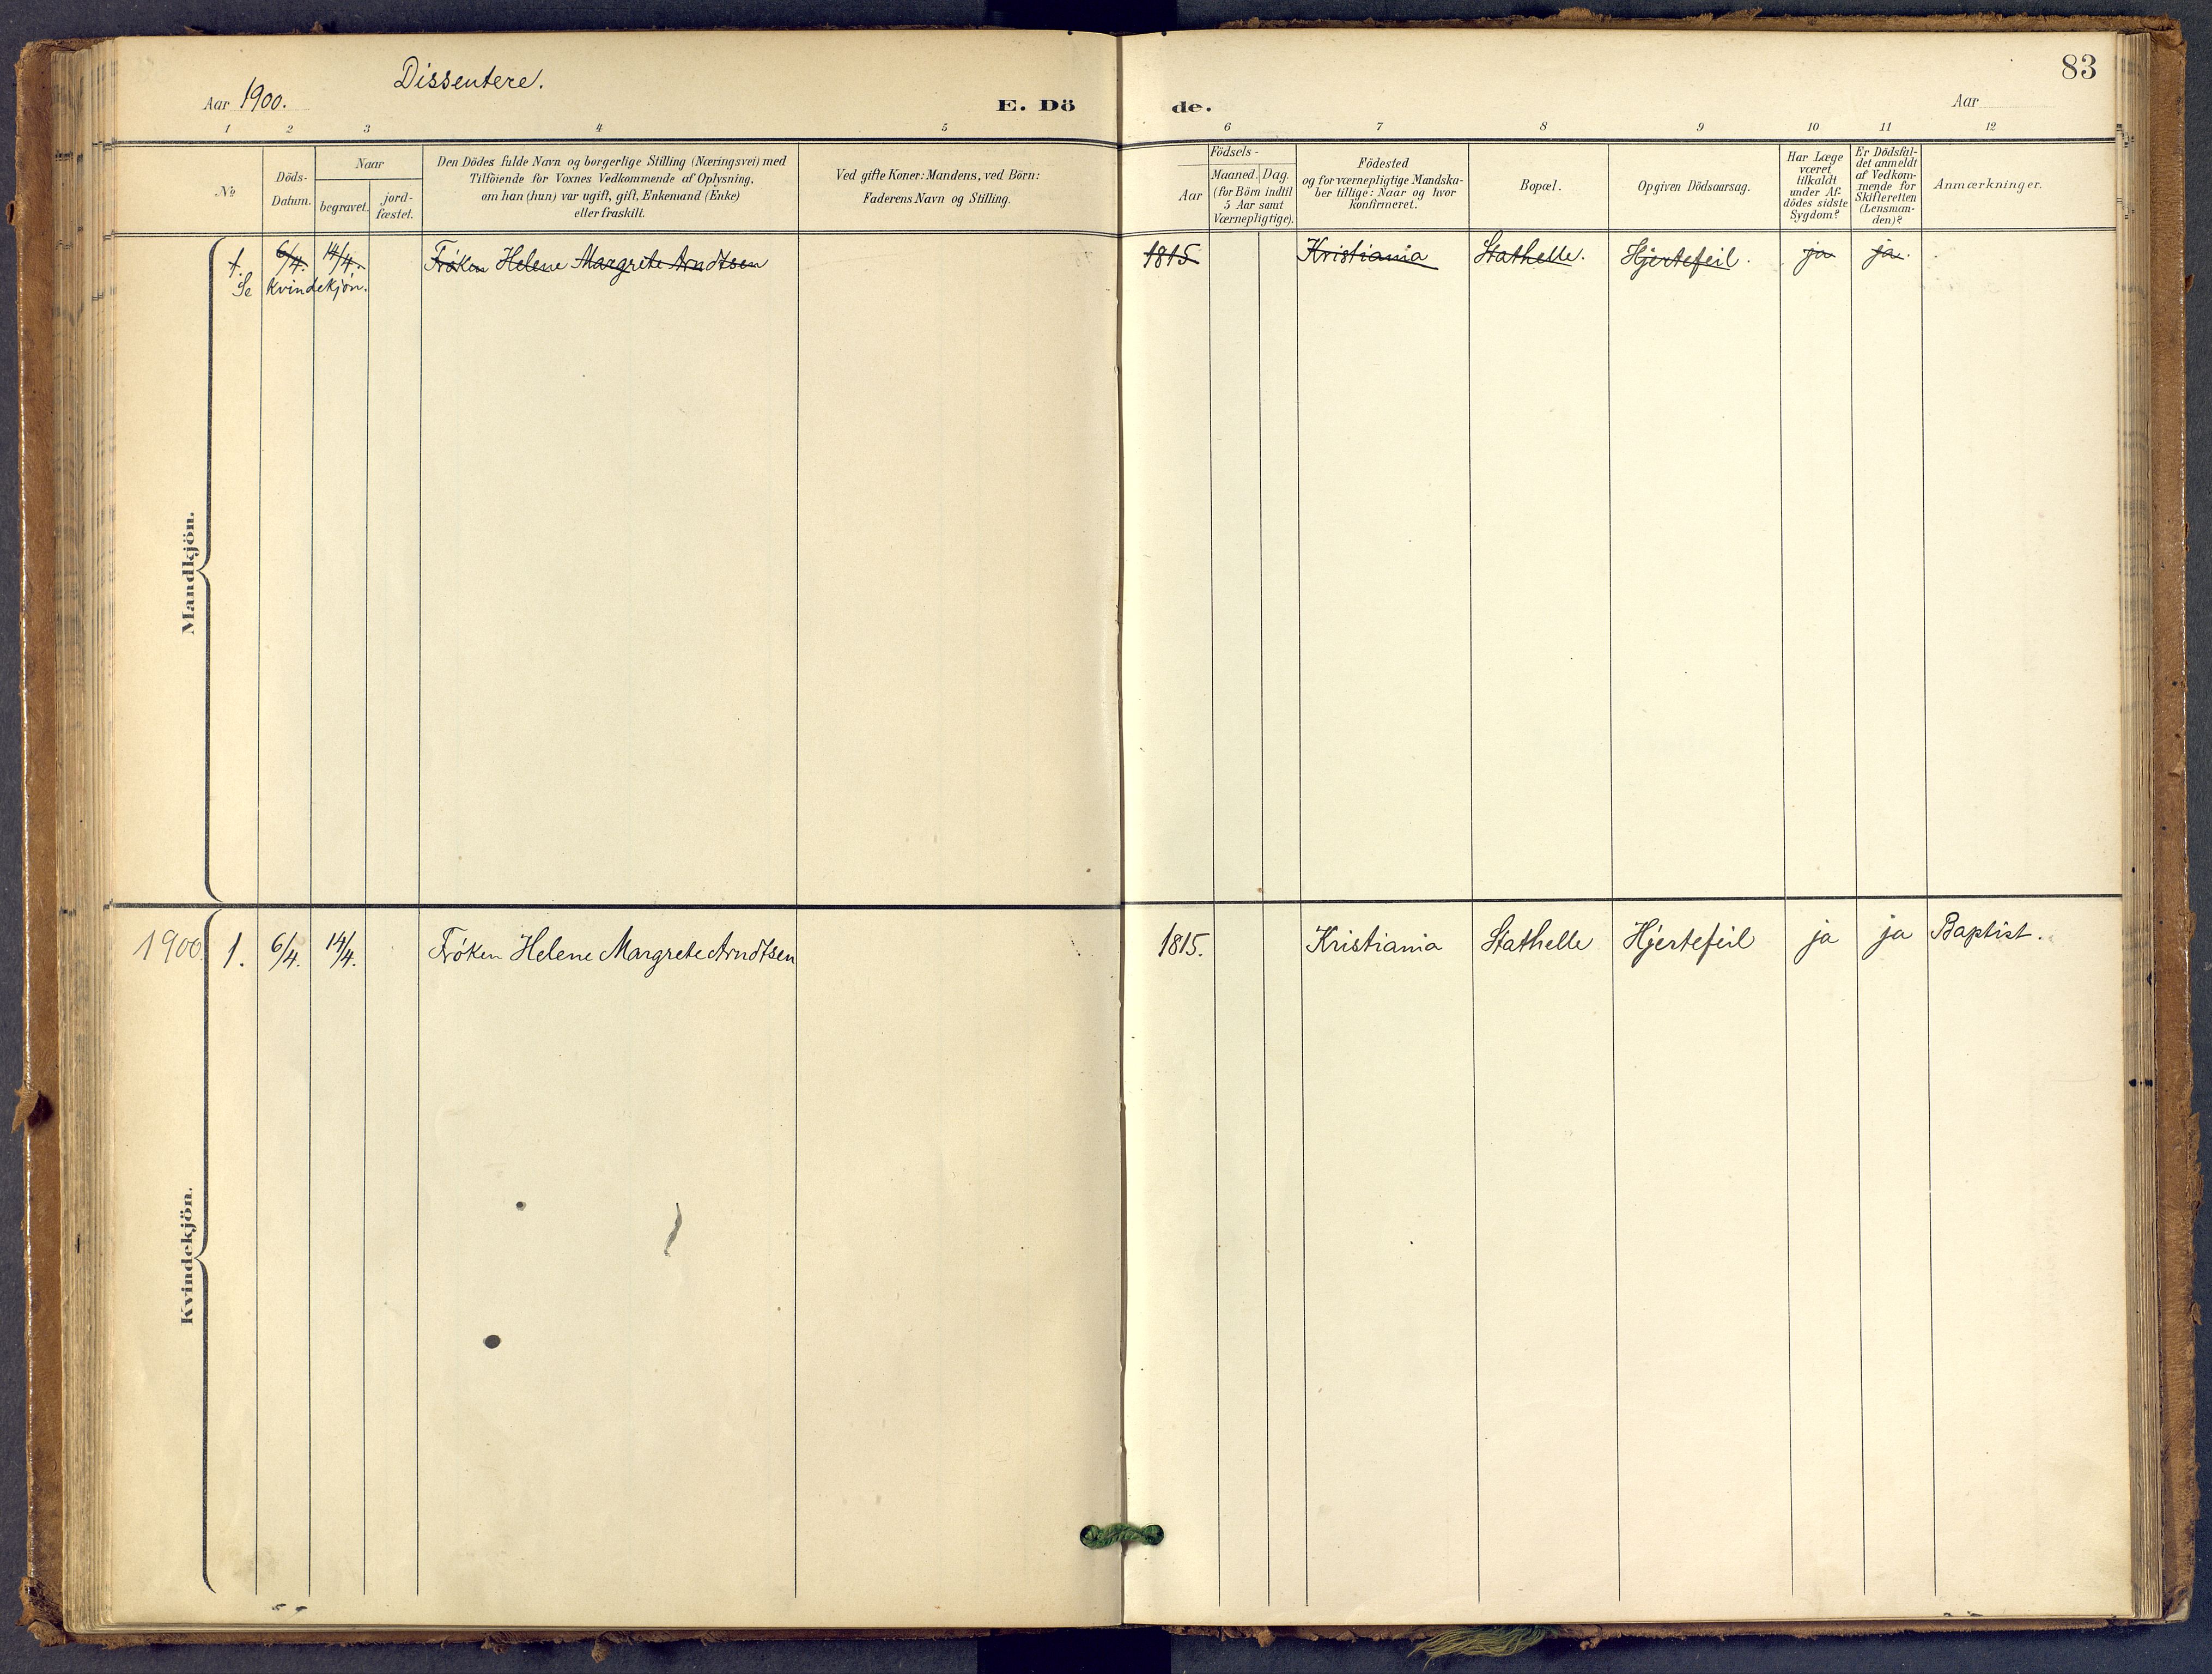 Dissentere.
83
Aar 1900.
E. Dö de.
Aar
1 2 3 4 5 6 7 8 9 10 11 12
No
Döds-
Datum.
Naar
begravet.
jord-
fæstet.
Den Dödes fulde Navn og borgerlige Stilling (Næringsvei) med
Tilföiende for Voxnes Vedkommende af Oplysning,
om han (hun) var ugift, gift, Enkemand (Enke)
eller fraskilt.
Ved gifte Koner: Mandens, ved Börn:
Faderens Navn og Stilling.
Födsels-
Aar
Maaned. Dag.
(for Börn indtil
5 Aar samt
Værnepligtige).
Födested
og for værnepligtige Mandska-
ber tillige: Naar og hvor
konfirmeret.
Bopæl.
Opgiven Dödsaarsag.
Har Læge
været
tilkaldt
under Af-
dödes sidste
Sygdom?
Er Dödsfal-
det anmeldt
af Vedkom-
mende for
Skifteretten
(Lensman-
den)?
Anmærkninger.
Mandkjön.
1. 6/4. 14/4. Frøken Helene Margrete Arndtsen 1815 Kristiania Stathelle. Hjertefeil. ja ja.
Se Kvindekjøn.
Kvindekjön.
1900. 1. 6/4. 14/4. Frøken Helene Margrete Arndtsen 1815. Kristiania Stathelle Hjertefeil ja ja Baptist.